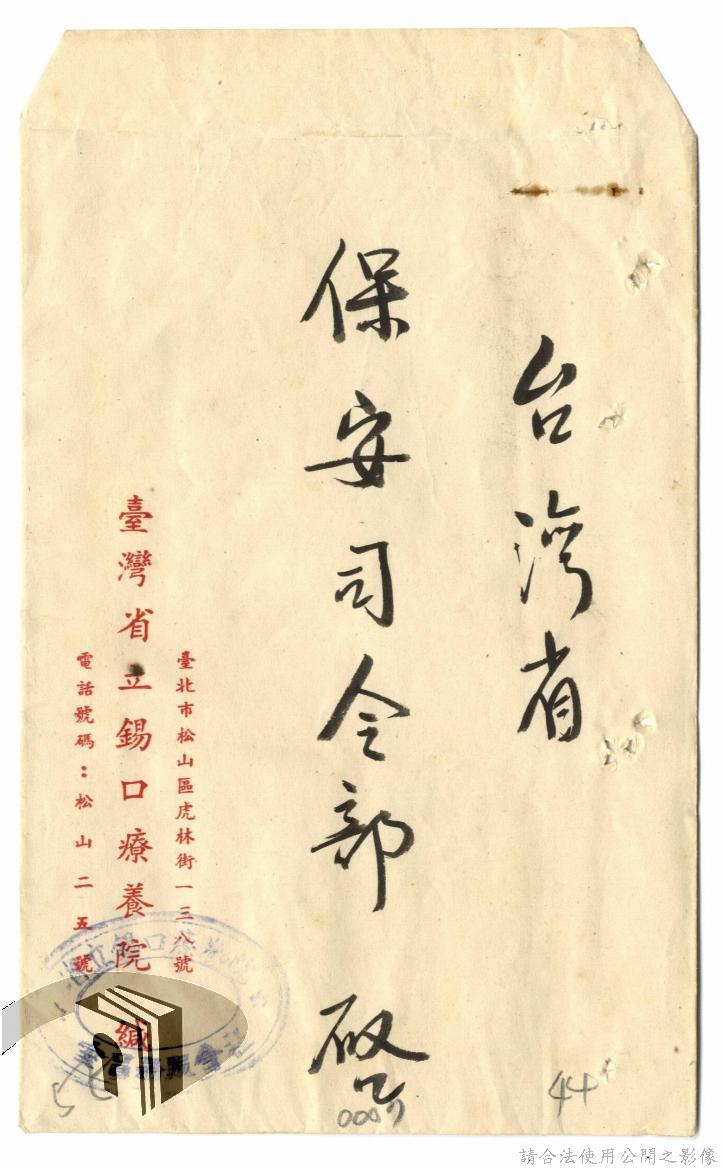 台湾省
保安司令部 啟
臺北市松山區虎林街一三八號
臺灣省立錫口療養院緘
電話號碼：松山二五號
44
請合法使用公開之影像